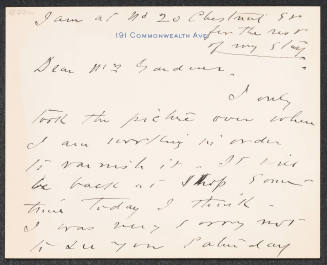 I am at No 20 Chestnut St
for the rest
of my stay
191 COMMONWEALTH AVE.
Dear Mrs Gardner.
I only
took the picture over where
I am working in order
to varnish it. It will
be back at shop some
time today I think.
I was very sorry not
to see you Saturday